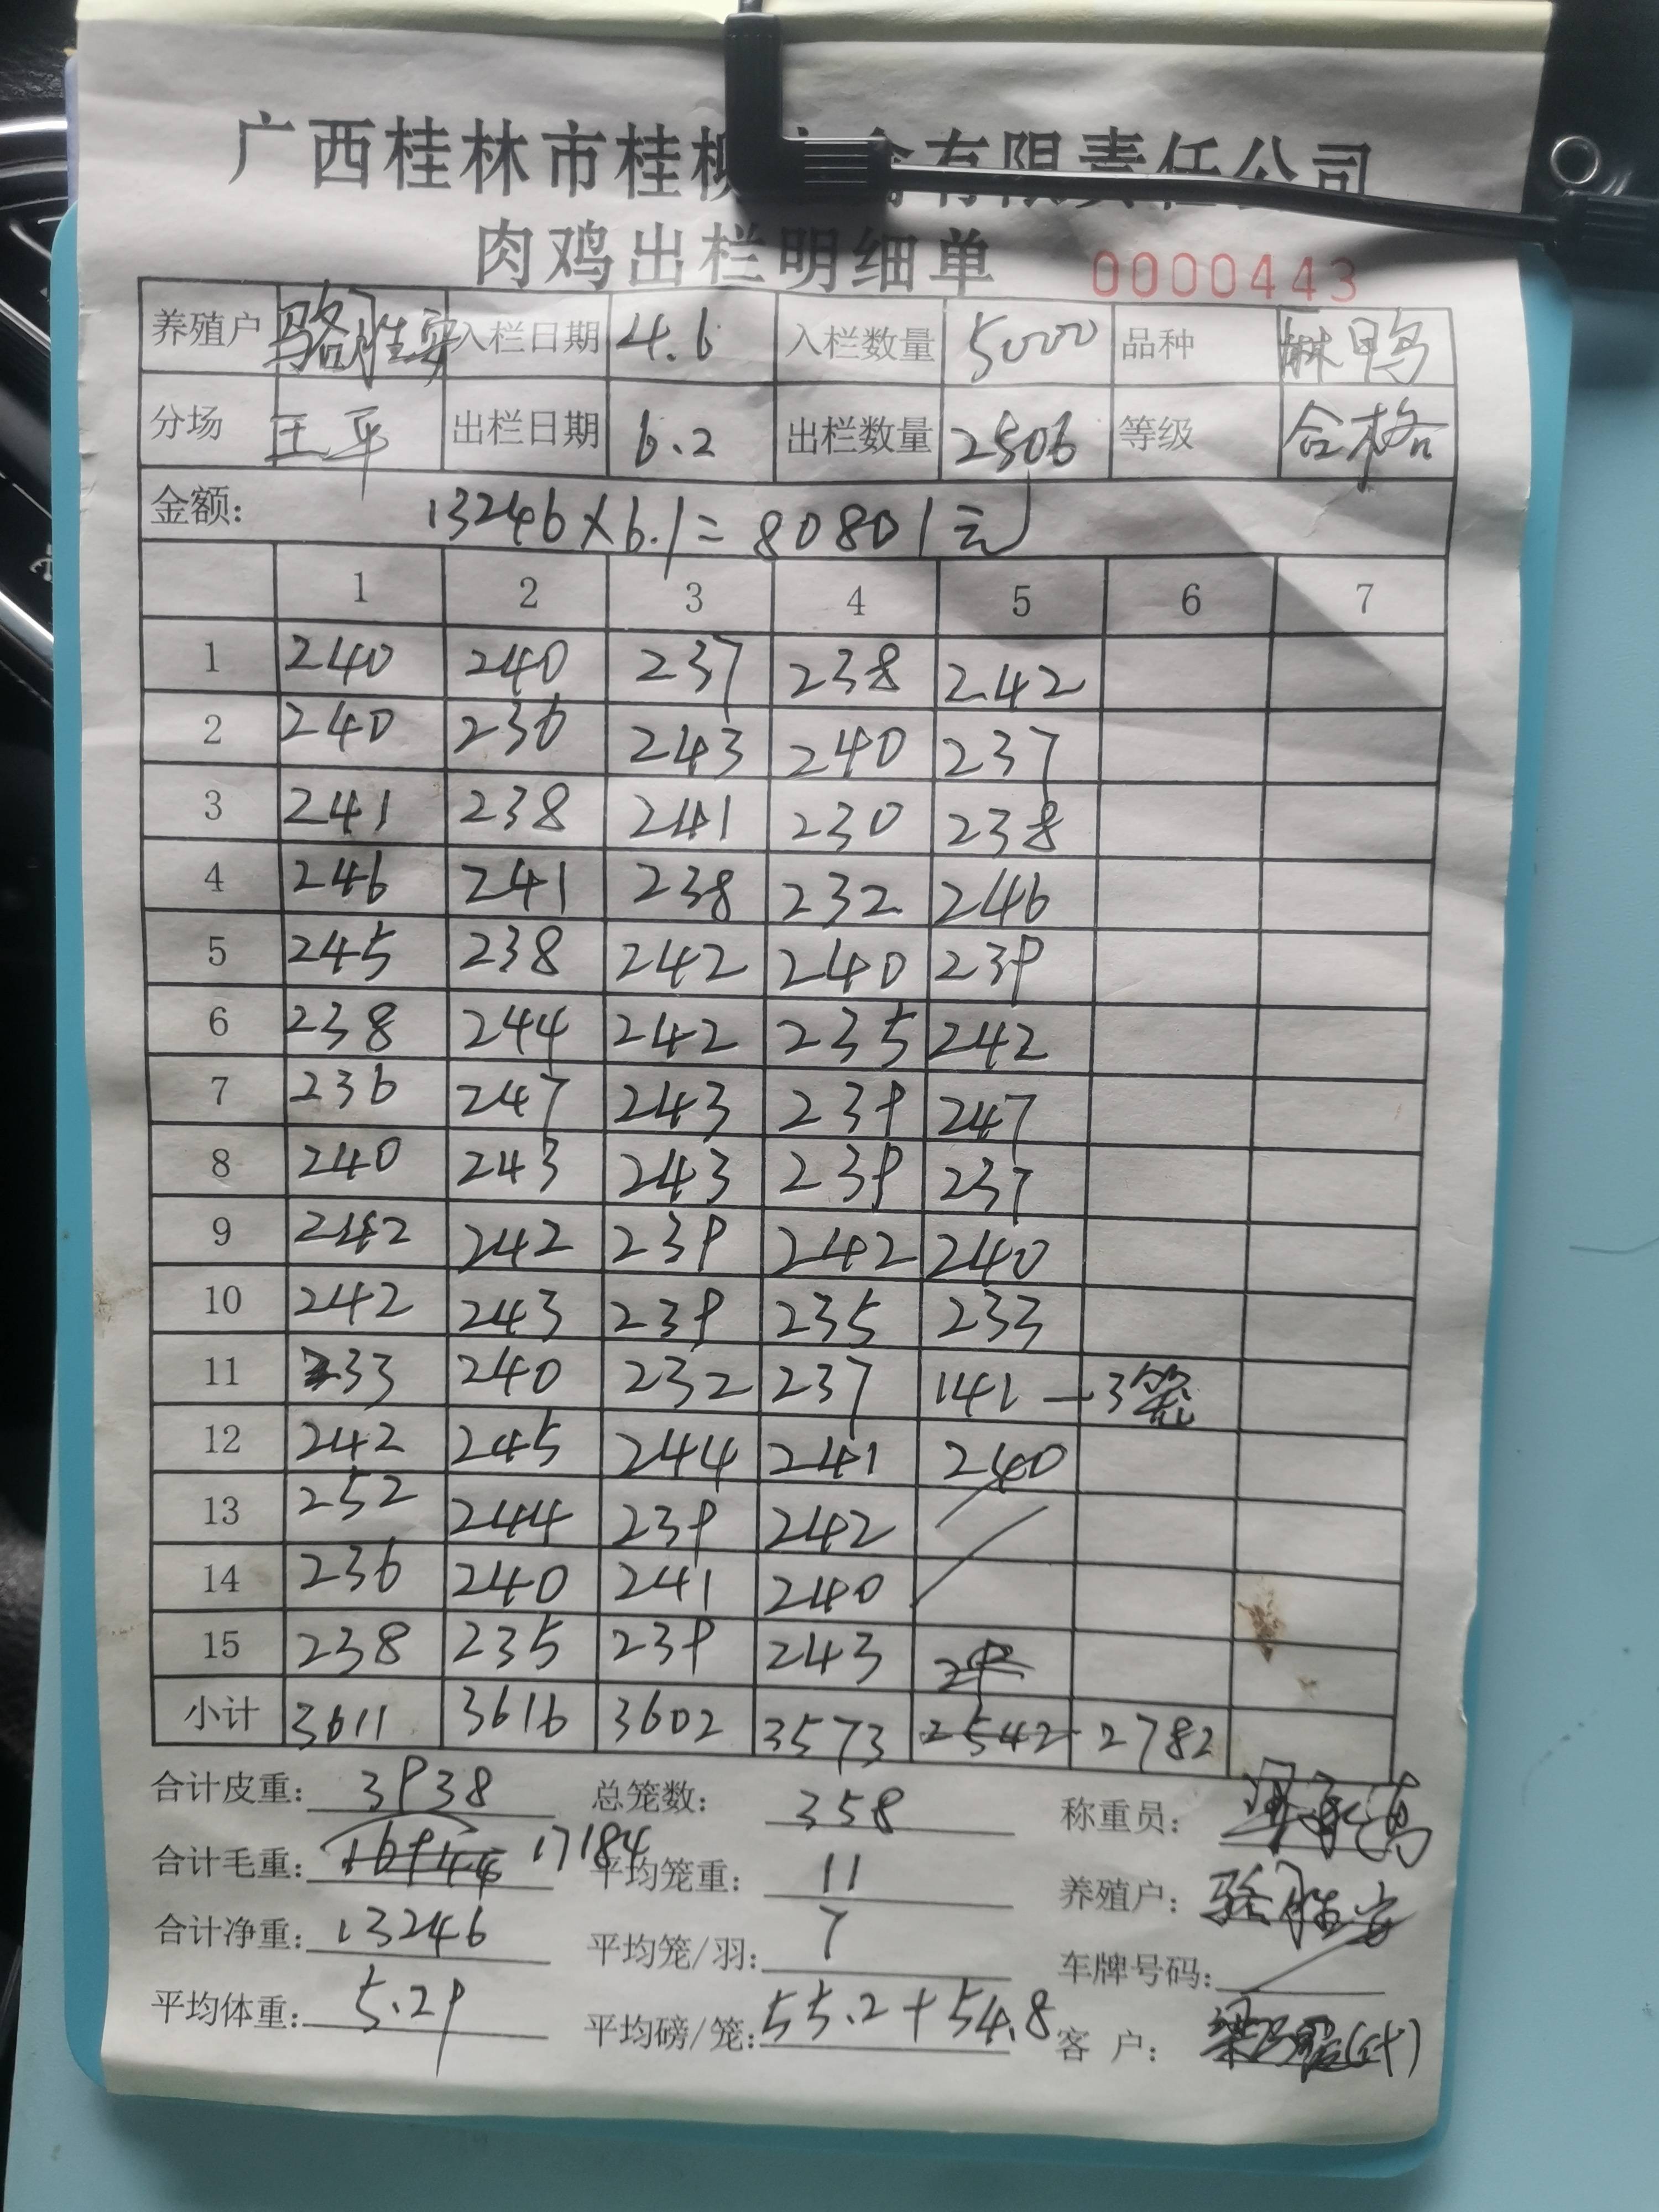 广西桂林市桂柳 有限责任公司
肉鸡出栏明细单 0000443
养殖户 骆胜安 入栏日期 4.6 入栏数量 5000 品种 麻鸭
分场 王平 出栏日期 6.2 出栏数量 2506 等级 合格
金额: 13246×6.1=80801元
1 2 3 4 5 6 7
1 240 240 237 238 242
2 240 236 243 240 237
3 241 238 241 230 238
4 246 241 238 232 246
5 245 238 242 240 239
6 238 244 242 235 242
7 236 247 243 239 247
8 240 243 243 239 237
9 242 242 239 242 240
10 242 243 239 235 233
11 233 240 232 237 141 — 3笼
12 242 245 244 241 240
13 252 244 239 242
14 236 240 241 240
15 238 235 239 243
小计 3611 3616 3602 3573 2542 2782
合计皮重: 3938 总笼数: 358 称重员:
合计毛重: 16944 17184 平均笼重: 11 养殖户: 骆胜安
合计净重: 13246 平均笼/羽: 7 车牌号码:
平均体重: 5.29 平均磅/笼: 55.2+54.8 客 户: (代)